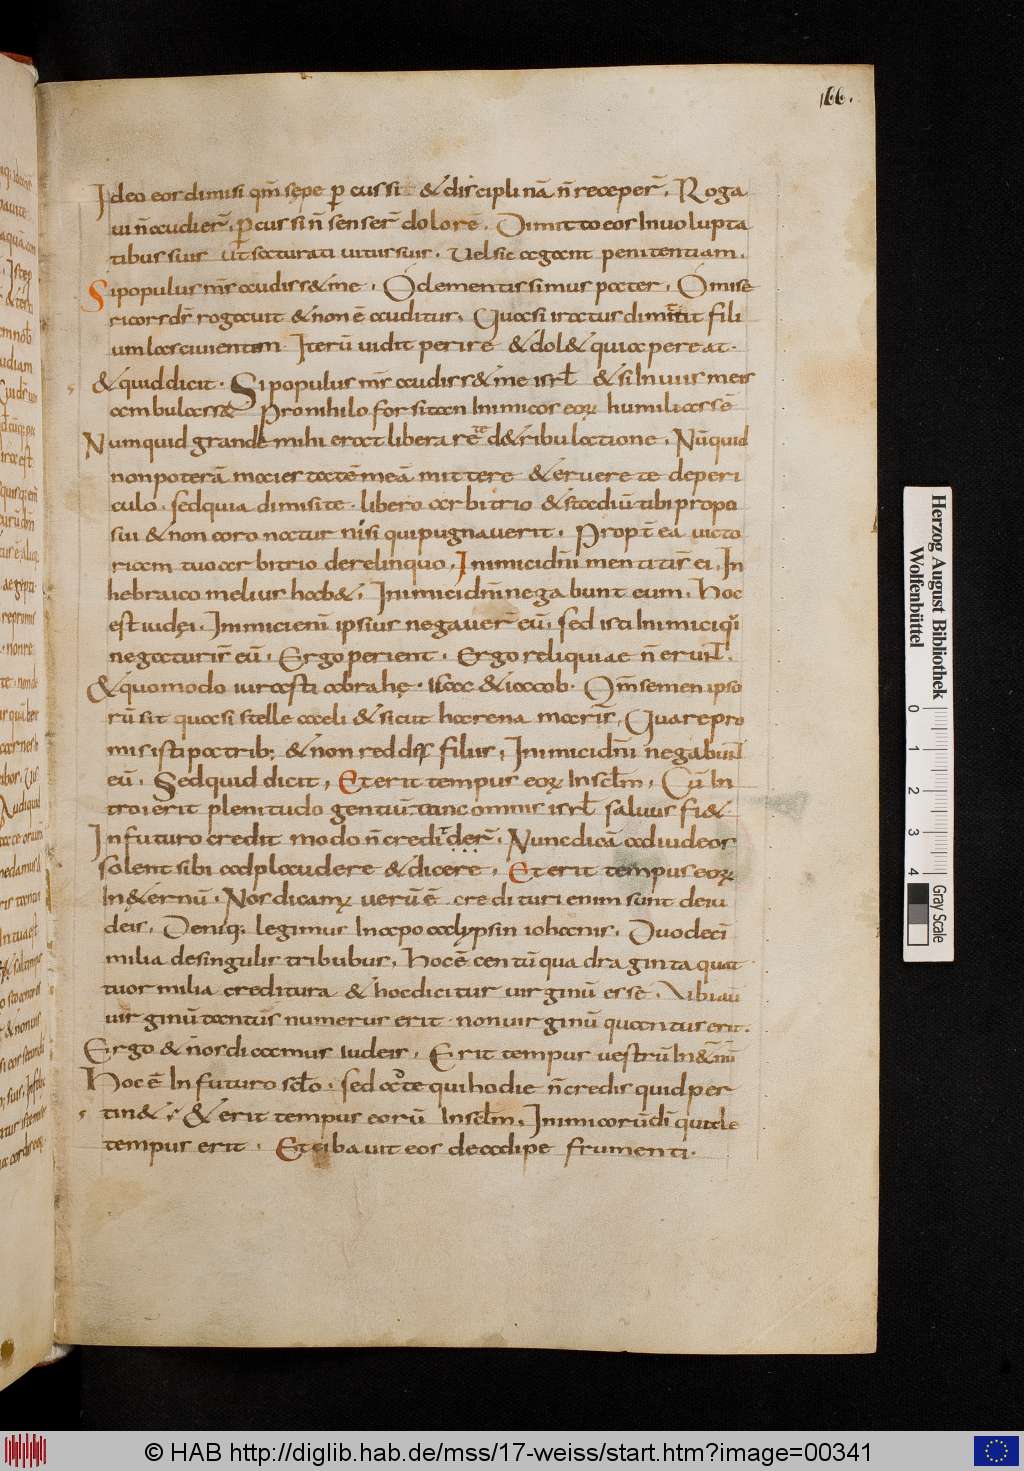 166.
Ideo eos dimisi qm̄ sępe percussi & disciplinā n̄ receper̄. Roga
ui n̄ audier̄. percussi n̄ senser̄ dolorē. Dimitto eos In uolupta
tibus suis ut saturati uitiis suis. Uel sic agant penitentiam.
Si populus ms̄ audiss& me. O clementissimus pater. O mise
ricors ds̄ rogauit & non ē auditur. Quasi iratus dimittit fili
um lasciuientem Iterū uidit perire & dol& quia pereat.
& quid dicit. Si populus ms̄ audiss& me isrł & si In uiis meis
ambulass& Pro nihilo forsitan Inimicos eoꝝ humiliassē
Numquid grande mihi erat liberare te de tribulatione. Nūquid
non poterā maiestatē meā mittere & eruere te de peri
culo. sed quia dimisi te libero arbitrio & stadiū tibi propo
sui & non coronatur nisi qui pugnauerit. Propt̄ ea uicto
riam tuo arbitrio derelinquo. Inimici dnī mentiti s̄ ei. In
hebraico melius hab&. Inimici dnī negabunt eum. Hoc
est iudęi. Inimici enī ipsius negauer̄ eū. sed isti Inimici qui
negaturi s̄ eū. Ergo perient. Ergo reliquiae n̄ erunt.
& quomodo iurasti abrahę. isaac & iacob. Qm̄ semen ipso
rū sit quasi stelle caeli & sicut harena maris. Quare pro
misisti patrib; & non reddis filiis. Inimici dnī negabunt
eū. Sed quid dicit. Et erit tempus eoꝝ In sclm̄. Cū In
troierit plenitudo gentiū. tunc omnis isrł saluus fi&
In futuro credit modo n̄ credider̄. Nunc dicā ad iudeos
solent sibi adplaudere & dicere. Et erit tempus eoꝝ
In &ernū. Nos dicamꝰ uerū ē credituri enim sunt de iu
deis. Deniq; legimus In apocalypsin iohannis. Duodeci
milia de singulis tribubus. Hoc ē centū quadraginta quat
tuor milia creditura & hoc dicitur uirginū esse.
uirginū tantus numerus erit non uirginū quantus erit.
Ergo & nos dicamus iudeis. Erit tempus uestrū In &ernū
Hoc ē In futuro sclo. sed a te qui hodie n̄ credis quid per
tin& & erit tempus eorū In sclm̄. Inimicorū dī quale
tempus erit. Et cibauit eos de adipe frumenti.
Herzog August Bibliothek
Wolfenbüttel
0 1 2 3 4 Gray Scale
© HAB http://diglib.hab.de/mss/17-weiss/start.htm?image=00341